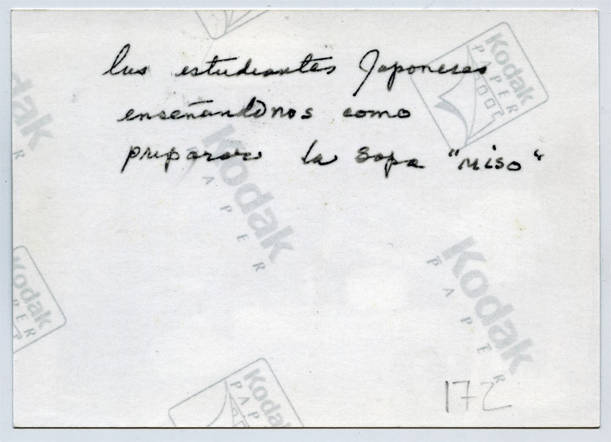 las estudiantes Japoneses
enseñandonos como
preparar la sopa "miso"
Kodak
PAPER
Kodak
PAPER
Kodak
PAPER
Kodak
PAPER
Kodak
PAPER
Kodak
PAPER
172